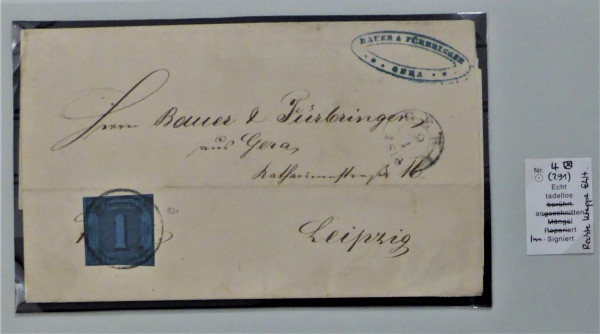 BAUER & FÜRBRINGER
GERA
Herrn Bauer & Fürbringer,
aus Gera,
Katharinenstraße 16.
GERA
1
Leipzig
Nr. 4
(291)
Echt
tadellos
berührt
angeschnitten
Mängel
Repariert
Signiert
Rechte Klappe fehlt